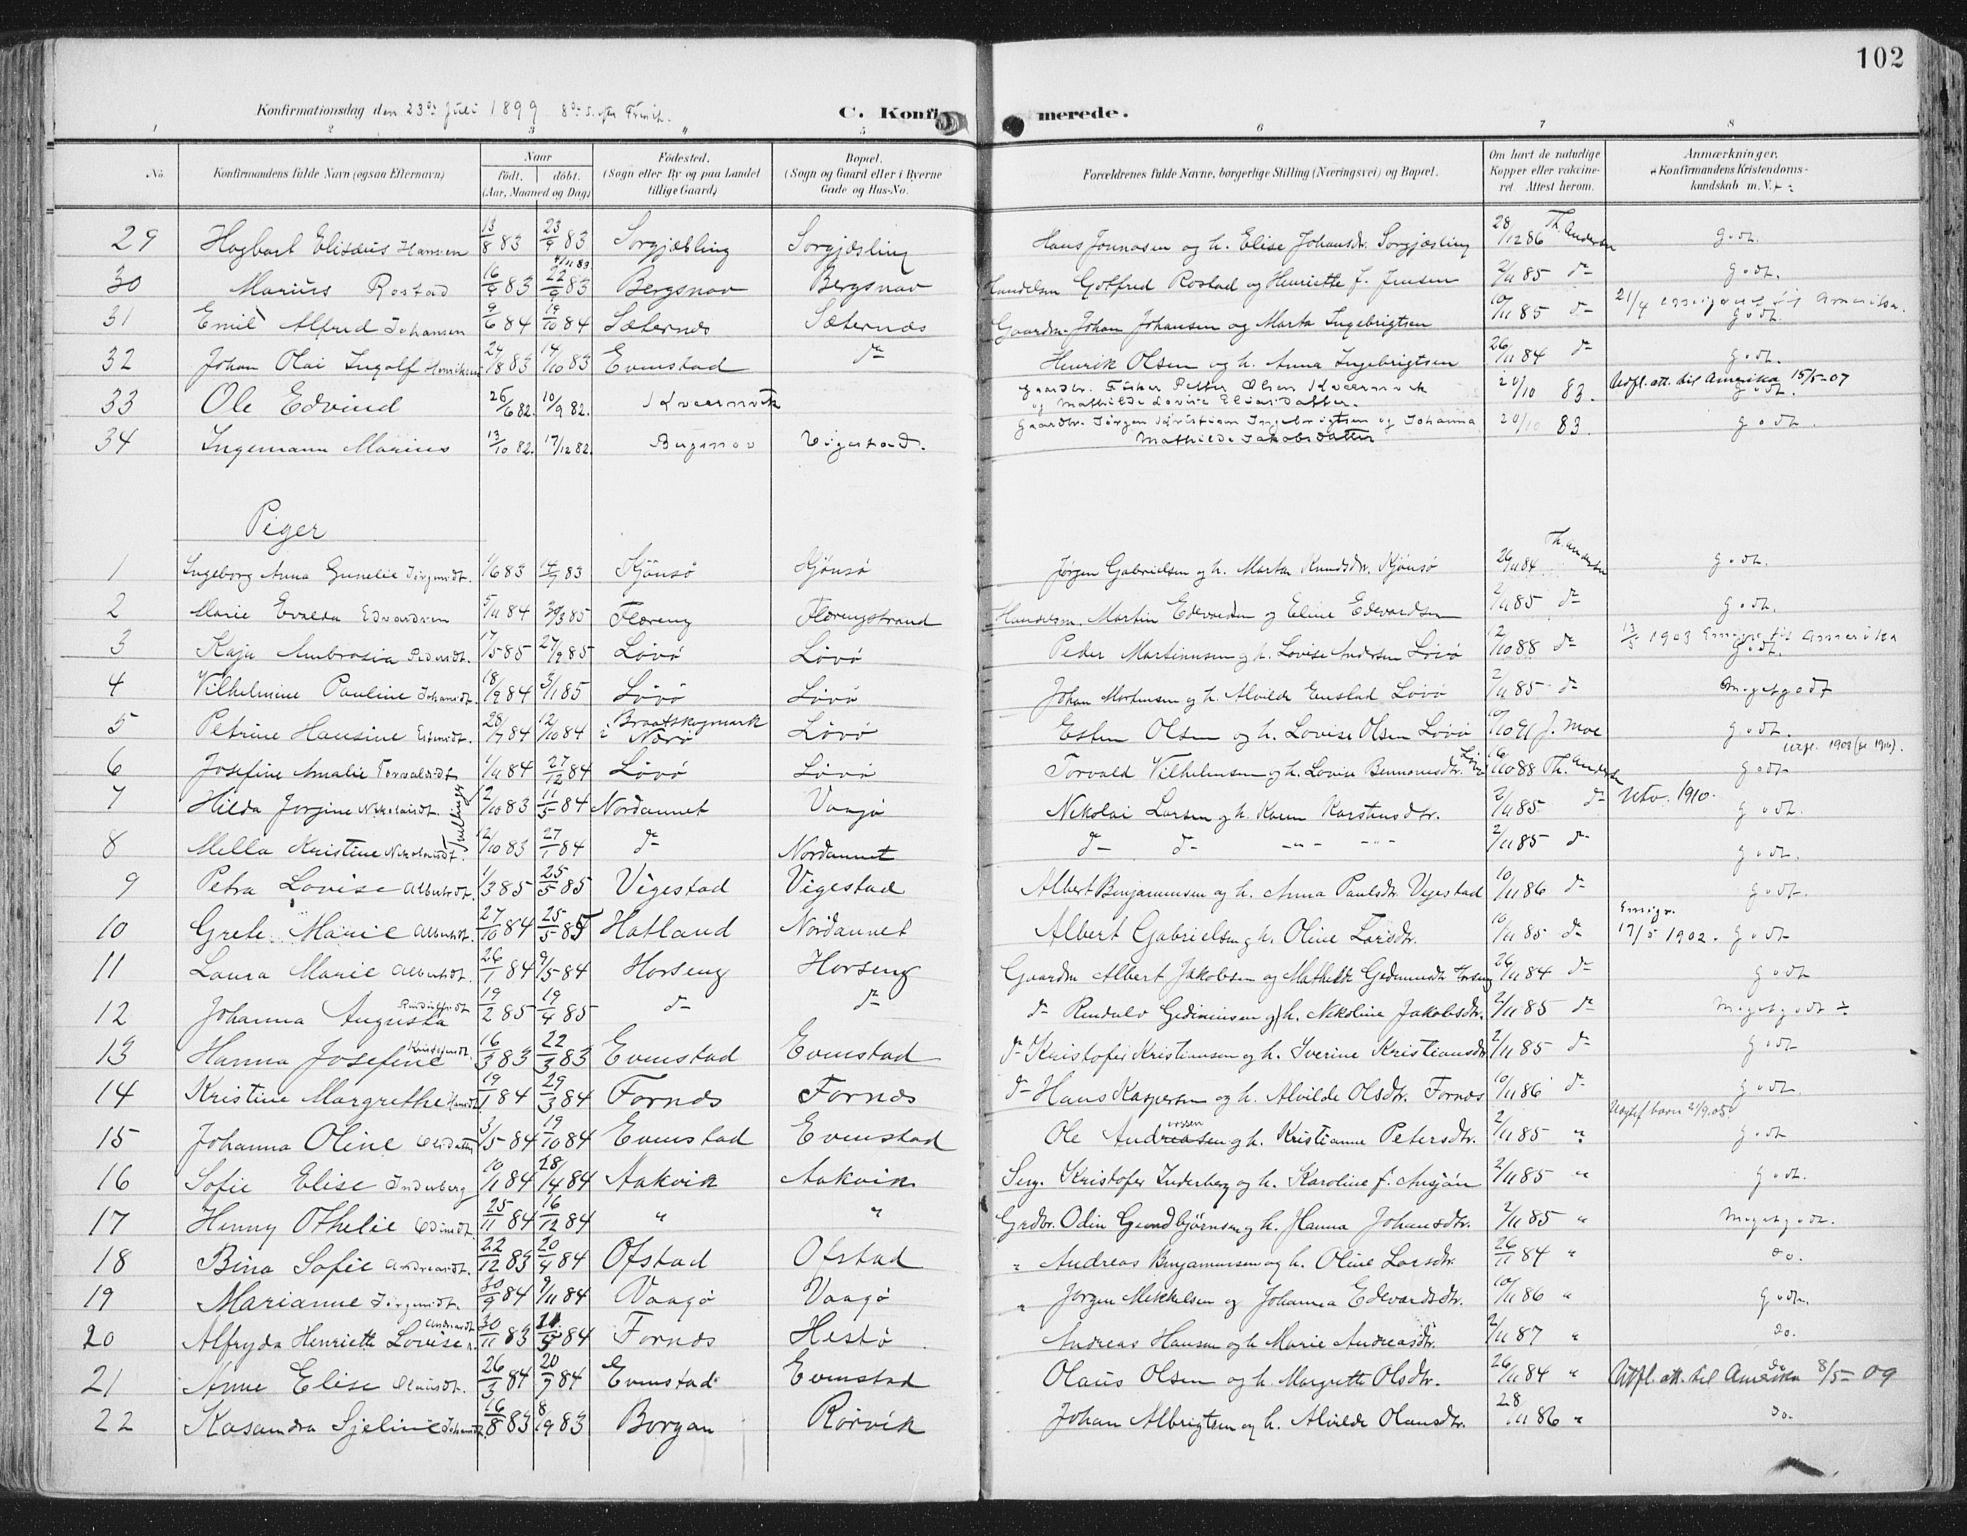 102
Konfirmationsdag den 23de Juli 1899 8de S. efter Trinit.
C. Konfirmerede.
1 2 3 4 5 6 7 8
No. Konfirmandens fulde Navn (ogsaa Efternavn) Naar født, døbt. (Aar, Maaned og Dag) Fødested. (Sogn eller By og paa Landet tillige Gaard) Bopæl. (Sogn og Gaard eller i Byerne Gade og Hus-No. Forældrenes fulde Navne, borgerlige Stilling (Næringsvei) og Bopæl. Om havt de naturlige Kopper eller vakcineret Attest herom. Anmærkninger. Konfirmandens Kristendomskundskab m. V.
29 Hagbart Elisæus Hansen 13/8 83 23/9 83 Sørgjæsling Sørgjæsling Hans Jonnasen og h. Elise Johansdr. Sørgjæsling 28/12 86 Th. Andersen godt.
30 Marius Rostad 16/9 83 22/9 83 4/11 83 Bergsnov Bergsnov Handelsm Gotfred Rostad og Henriette f. Jensen 2/11 85 do godt.
31 Emil Alfred Johansen 9/6 84 19/10 84 Sæternæs Sæternæs Gaardm. Johan Johansen og Marta Ingebrigtsen 10/11 85 do 21/4 emigrert til Amerika. godt.
32 Johan Olai Ingolf Henriksen 24/8 83 14/10 83 Evenstad do Henrik Olsen og h. Anna Ingebrigtsen 26/11 84 do godt.
33 Ole Edvind 26/6 82. 10/9 82. Kvernvik Gaardbr. Fisker Petter Olsen Kvernvik og Mathilde Lovise Eliasdatter. 20/10 83. Udfl. att. til Amerika 15/5-07 godt.
34 Ingemann Marius 13/10 82. 17/12 82. Bergsnov Vigestad. Gaardbr. Jørgen Kristian Ingebrigtsen og Johanna Mathilde Jakobsdatter 20/10 83. godt.
Piger
1 Ingeborg Anna Gunelie Jørgensdt. 1/6 83 14/9 83 Kjønsø Kjønsø Jørgen Gabrielsen og h. Marta Knudsdr. Kjønsø 26/11 84 Th. Andersen godt.
2 Marie Evalda Edvardsen 5/11 84 30/3 85 Flereng Flerengstrand Handelsm. Martin Edvardsen og Eline Edevardsen 2/11 85 do godt.
3 Kaja Ambrosia Pedersdt. 17/5 85 27/9 85 Løvø Løvø Peder Martinusen og h. Lovise Andersen Løvø 2/10 88 do 13/5 1903 Emigr. til Amerika godt.
4 Vilhelmine Pauline Johansdt. 18/9 84 3/1 85 Løvø Løvø Johan Mortensen og h. Alvilde Evenstad Løvø 2/11 85 do Meget godt
5 Petrine Hansine Estensdt. 28/7 84 12/10 84 Braatskogmark i Nærø Løvø Esten Olsen og h. Lovise Olsen Løvø 10/10 91 J. Moe godt.
6 Josefine Amalie Torvaldsdt 1/11 84 27/12 84 Løvø Løvø Torvald Vilhelmsen og h. Lovise Bennonisdtr. Løvø 6/10 88 Th. Andersen utfl. 1903 (se 1910). godt
7 Hilda Jorgine Nikolaisdt. Tvillinger 2/10 83 11/5 84 Nordannet Vaagø Nikolai Larsen og h. Karen Karstensdtr. 2/11 85 do Utv. 1910. godt.
8 Mella Kristine Nikolaisdt. 2/10 83 27/1 84 do Nordannet do do -"- -"- 2/11 85 do godt.
9 Petra Lovise Albertsdt. 1/3 85 25/5 85 Vigestad Vigestad Albert Benjaminsen og h. Anna Paulsdtr. Vigestad 10/11 86 do godt.
10 Grete Marie Albertsdt. 27/10 84 25/5 85 Hatland Nordannet Albert Gabrielsen og h. Oline Larsdtr. 10/11 85 do Emigr. 17/5 1902. godt
11 Laura Marie Albertsdt. 26/1 84 9/5 84 Horseng Horseng Gaardm Albert Jakobsen og Mathilde Gediminsdtr Horseng 26/11 84 do godt
12 Johanna Augusta 19/2 85 19/4 85 do do do Rendulv Gediminsen og h. Nikoline Jakobsdtr. 2/11 85 do Meget godt ÷
13 Hanna Josefine Kristofersdt. 16/3 83 22/3 83 Evenstad Evenstad do Kristofer Kristiansen og h. Iverine Kristiansdtr. 2/11 85 do godt
14 Kristine Margrethe Hansdt 19/1 84 29/3 84 Fornæs Fornæs do Hans Kaspersen og h. Alvilde Olsdtr. Fornæs 10/11 86 do godt.
15 Johanna Oline Olsdatter 3/5 84 19/10 84 Evenstad Evenstad Ole Andreasen og h. Kristianne Petersdtr. 2/11 85 " Uægtef. barn 21/9.05. godt
16 Sofie Elise Inderberg 10/11 84 28/4 84 Aakvik Aakvik Serg. Kristofer Inderberg og h. Karoline f. Ansjøn 2/11 85 " godt.
17 Henny Othelie Odinsdt. 25/11 84 16/12 84 " " Grdbr. Odin Gundbjørnsen og h. Hanna Johansdtr. 2/11 85 " Meget godt.
18 Bina Sofie Andreasdt. 22/12 83 20/4 84 Ofstad Ofstad " Andreas Benjaminsen og h. Oline Larsdtr. 26/11 84 " do.
19 Marianne Jørgensdt. 30/9 84 9/11 84 Vaagø Vaagø " Jørgen Mikkelsen og Johanna Edevardsdtr. 10/11 86 " godt.
20 Alfryda Henriette Lovise Andreasdt. 30/11 83 21/5 84 Fornæs Hestø Andreas Hansen og h. Marie Andreasdtr. 2/11 87 " do.
21 Anne Elise Olausdt. 26/3 84 20/7 84 Evenstad Evenstad Olaus Olsen og h. Margrethe Olsdtr. 26/11 84 " do Utfl. att. til Amerika 8/5-09
22 Kasandra Sjeline Johansdt. 16/8 83 8/9 83 Borgan Rørvik Johan Albrigtsen og h. Alvilde Olausdtr. 28/11 86 " do.